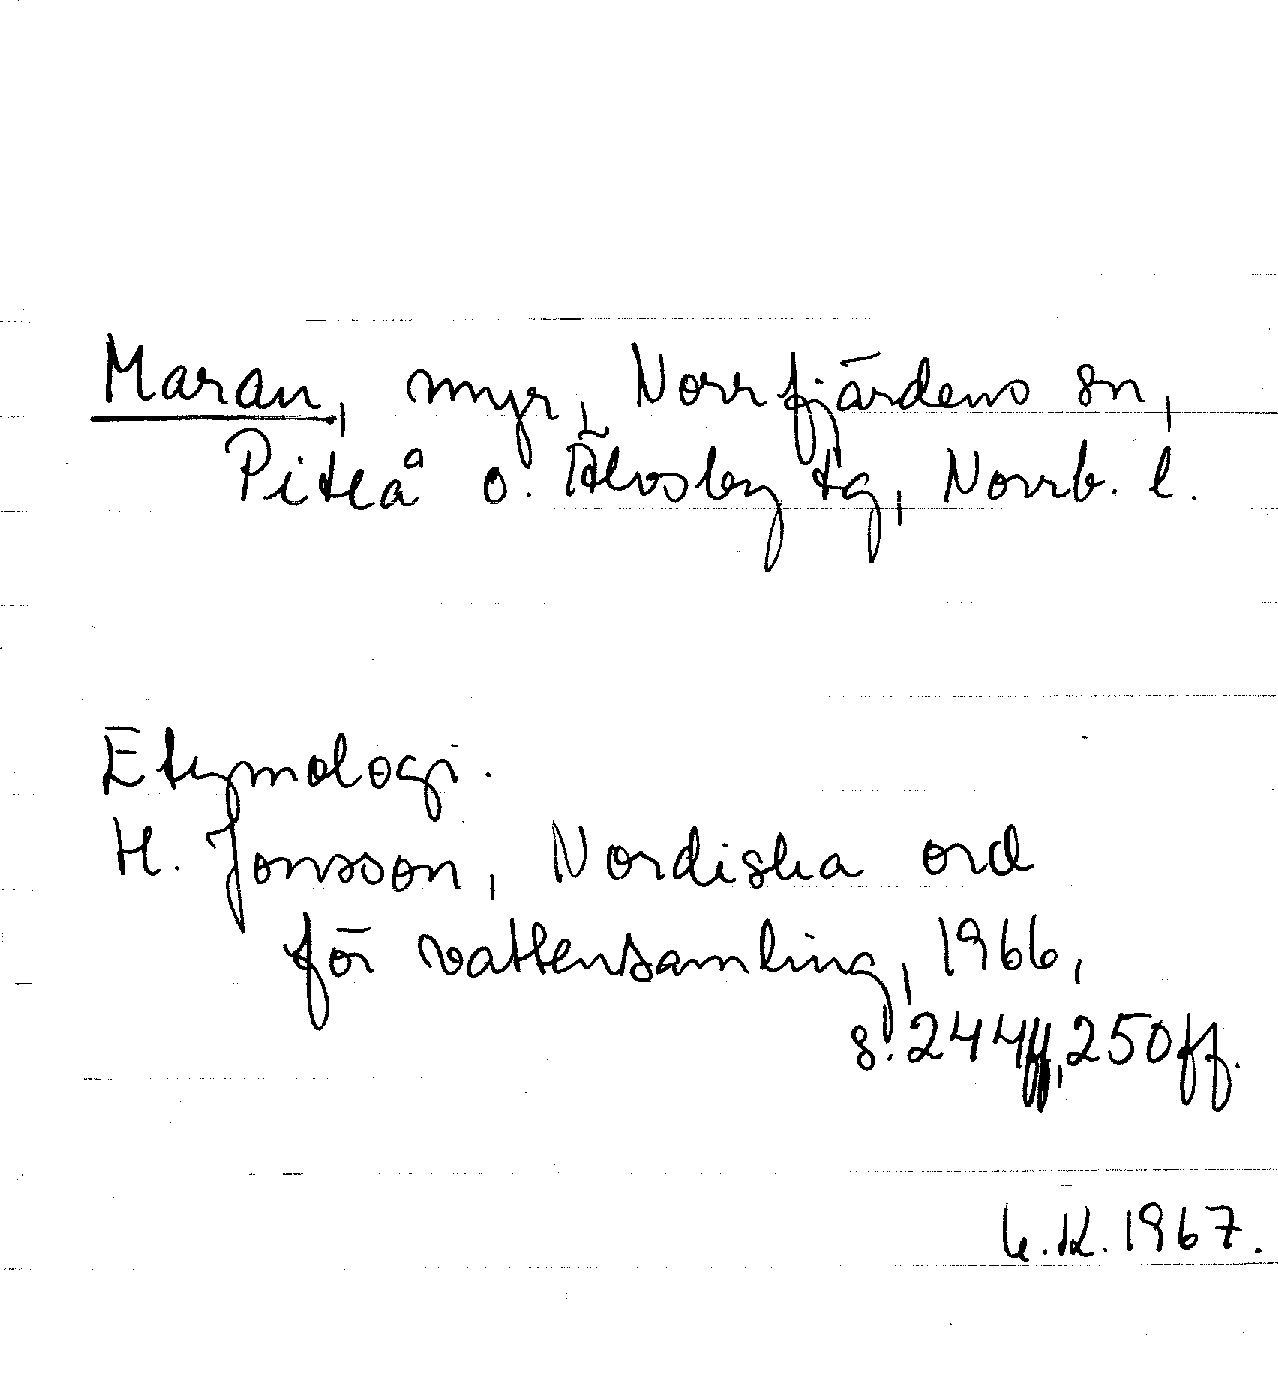 Maran, myr, Norrfjärdens sn,
Piteå o. Älvsby tg, Norrb. l.
Etymologi.
H. Jonsson, Nordiska ord
för vattensamling, 1966,
s. 244ff, 250ff.
1967.